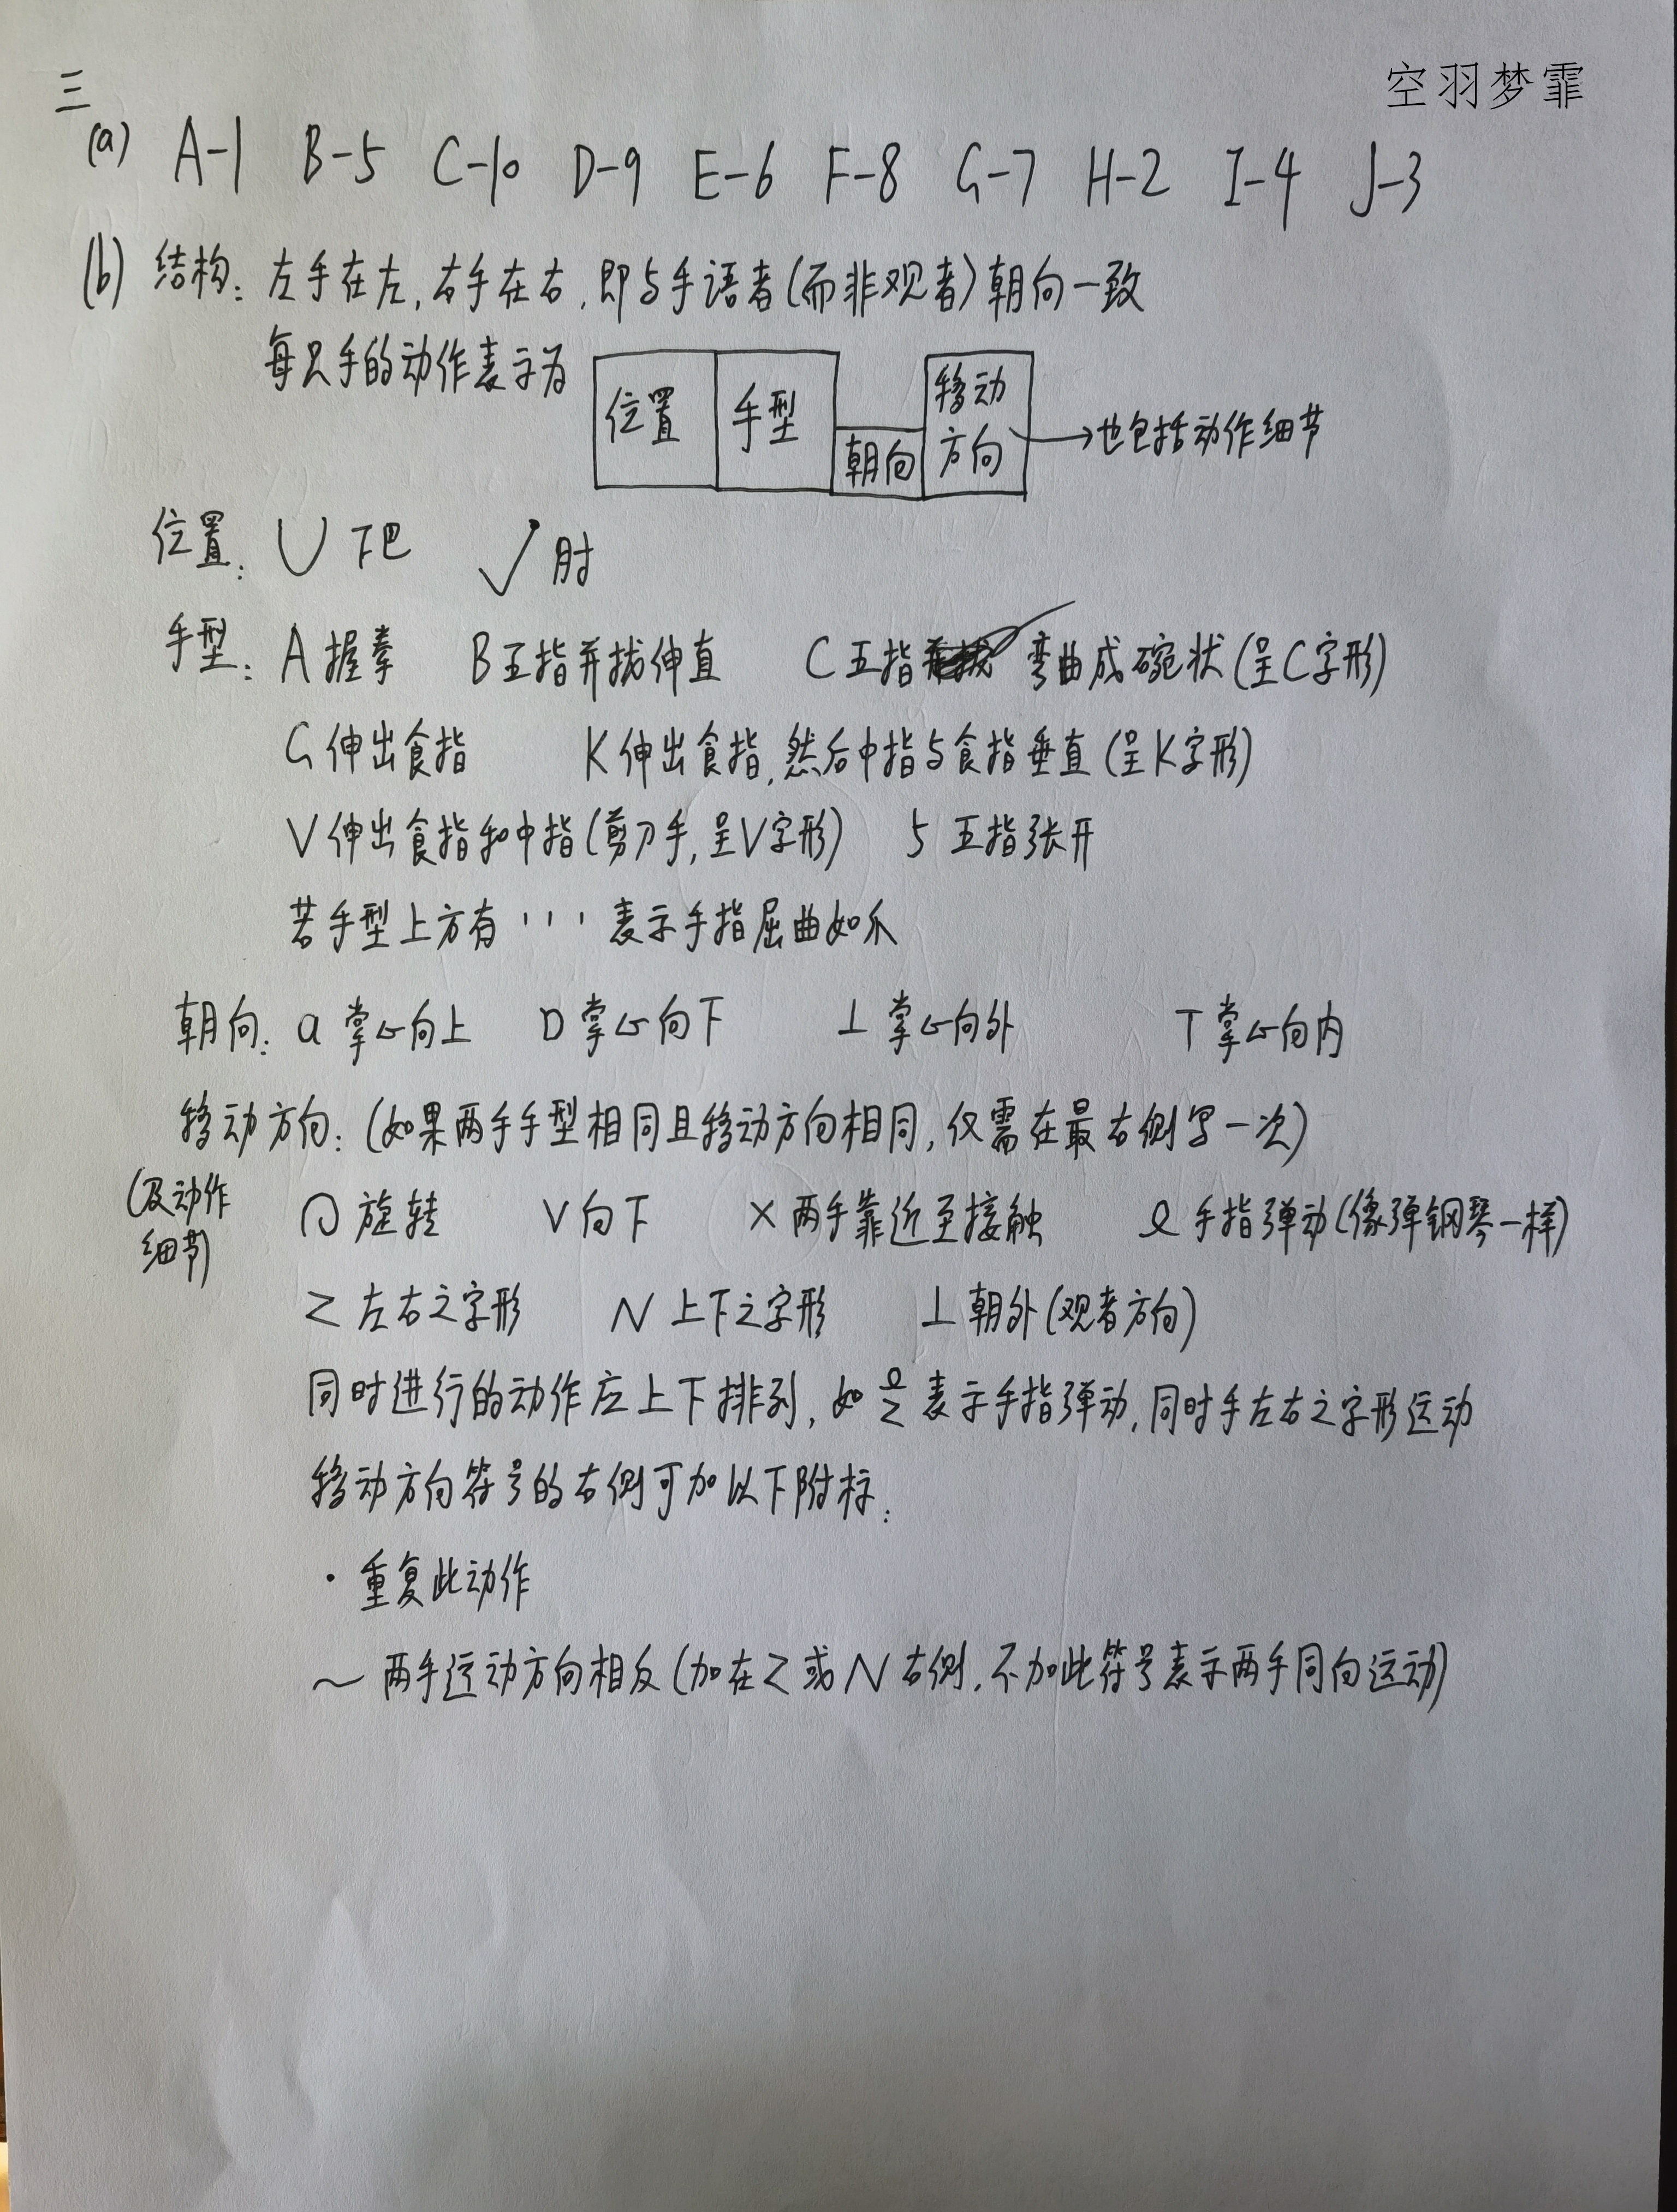 空羽梦霏
三
(a) A-1 B-5 C-10 D-9 E-6 F-8 G-7 H-2 I-4 J-3
(b) 结构: 左手在左, 右手在右, 即与手语者(而非观者)朝向一致
每只手的动作表示为 位置 手型 朝向 移动方向 → 也包括动作细节
位置: ∪ 下巴 √ 肘
手型: A 握拳 B 五指并拢伸直 C 五指 弯曲成碗状(呈C字形)
G 伸出食指 K 伸出食指, 然后中指与食指垂直(呈K字形)
V 伸出食指和中指(剪刀手, 呈V字形) 5 五指张开
若手型上方有 ''' 表示手指屈曲如爪
朝向: a 掌心向上 D 掌心向下 ⊥ 掌心向外 T 掌心向内
移动方向: (如果两手手型相同且移动方向相同, 仅需在最右侧写一次)
(及动作细节)
旋转 V 向下 × 两手靠近至接触 ჲ 手指弹动(像弹钢琴一样)
Z 左右之字形 N 上下之字形 ⊥ 朝外(观者方向)
同时进行的动作应上下排列, 如 ჲ Z 表示手指弹动, 同时手左右之字形运动
移动方向符号的右侧可加以下附标:
· 重复此动作
～ 两手运动方向相反(加在Z或N右侧, 不加此符号表示两手同向运动)